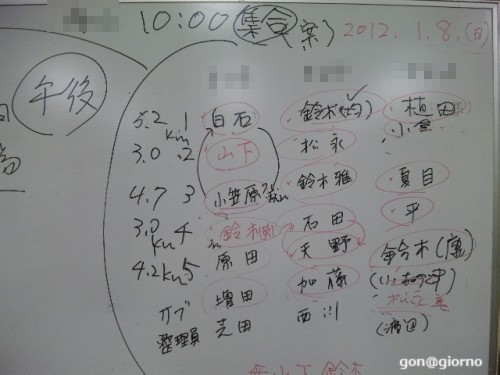 10:00 集合 案) 2012. 1. 8. (日)
午後
5.2 1 白石 鈴木(均) 植田
km 小倉
3.0 .2 山下 松永
4.7 3 小笠原 鈴木雅 夏目
3.0 km 4 鈴木 石田 平
4.2km 5 原田 天野 鈴木(康)
サブ 増田 加藤
整理員 芝田 西川 (渡辺)
gon@giorno